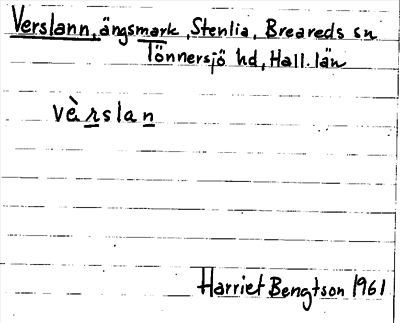 Verslann, ängsmark, Stenlia, Breareds sn
Tönnersjö hd, Hall. län
vèrslan
Harriet Bengtson 1961